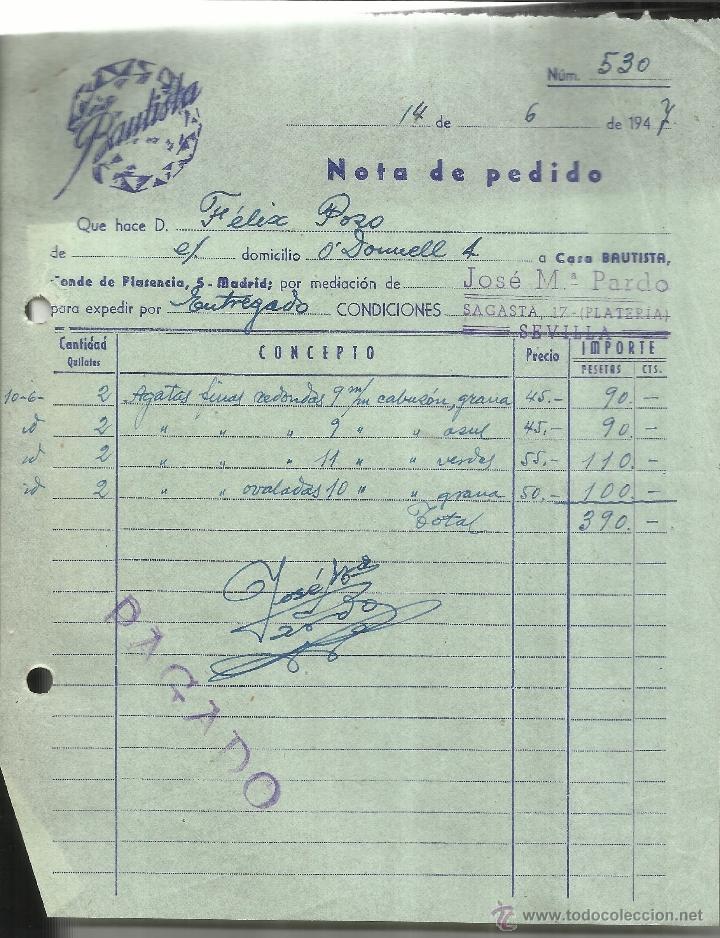 Bautista
Núm. 530
14 de 6 de 1947
Nota de pedido
Que hace D. Félix Pozo
de c/. domicilio O'Donnell 4 a Casa BAUTISTA,
Conde de Plasencia, 5 - Madrid; por mediación de José M.ª Pardo
para expedir por Entregado CONDICIONES SAGASTA, 17 - (PLATERIA)
SEVILLA
Cantidad Quilates CONCEPTO Precio IMPORTE PESETAS CTS.
10-6- 2 Agatas finas redondas 9 m/m cabuson, grana 45.- 90. -
id 2 " " " 9 " " azul 45.- 90. -
id 2 " " " 11 " " verdes 55.- 110. -
id 2 " " ovaladas 10 " " grana 50.- 100. -
Total 390. -
José Mª
Pardo
PAGADO
www.todocoleccion.net